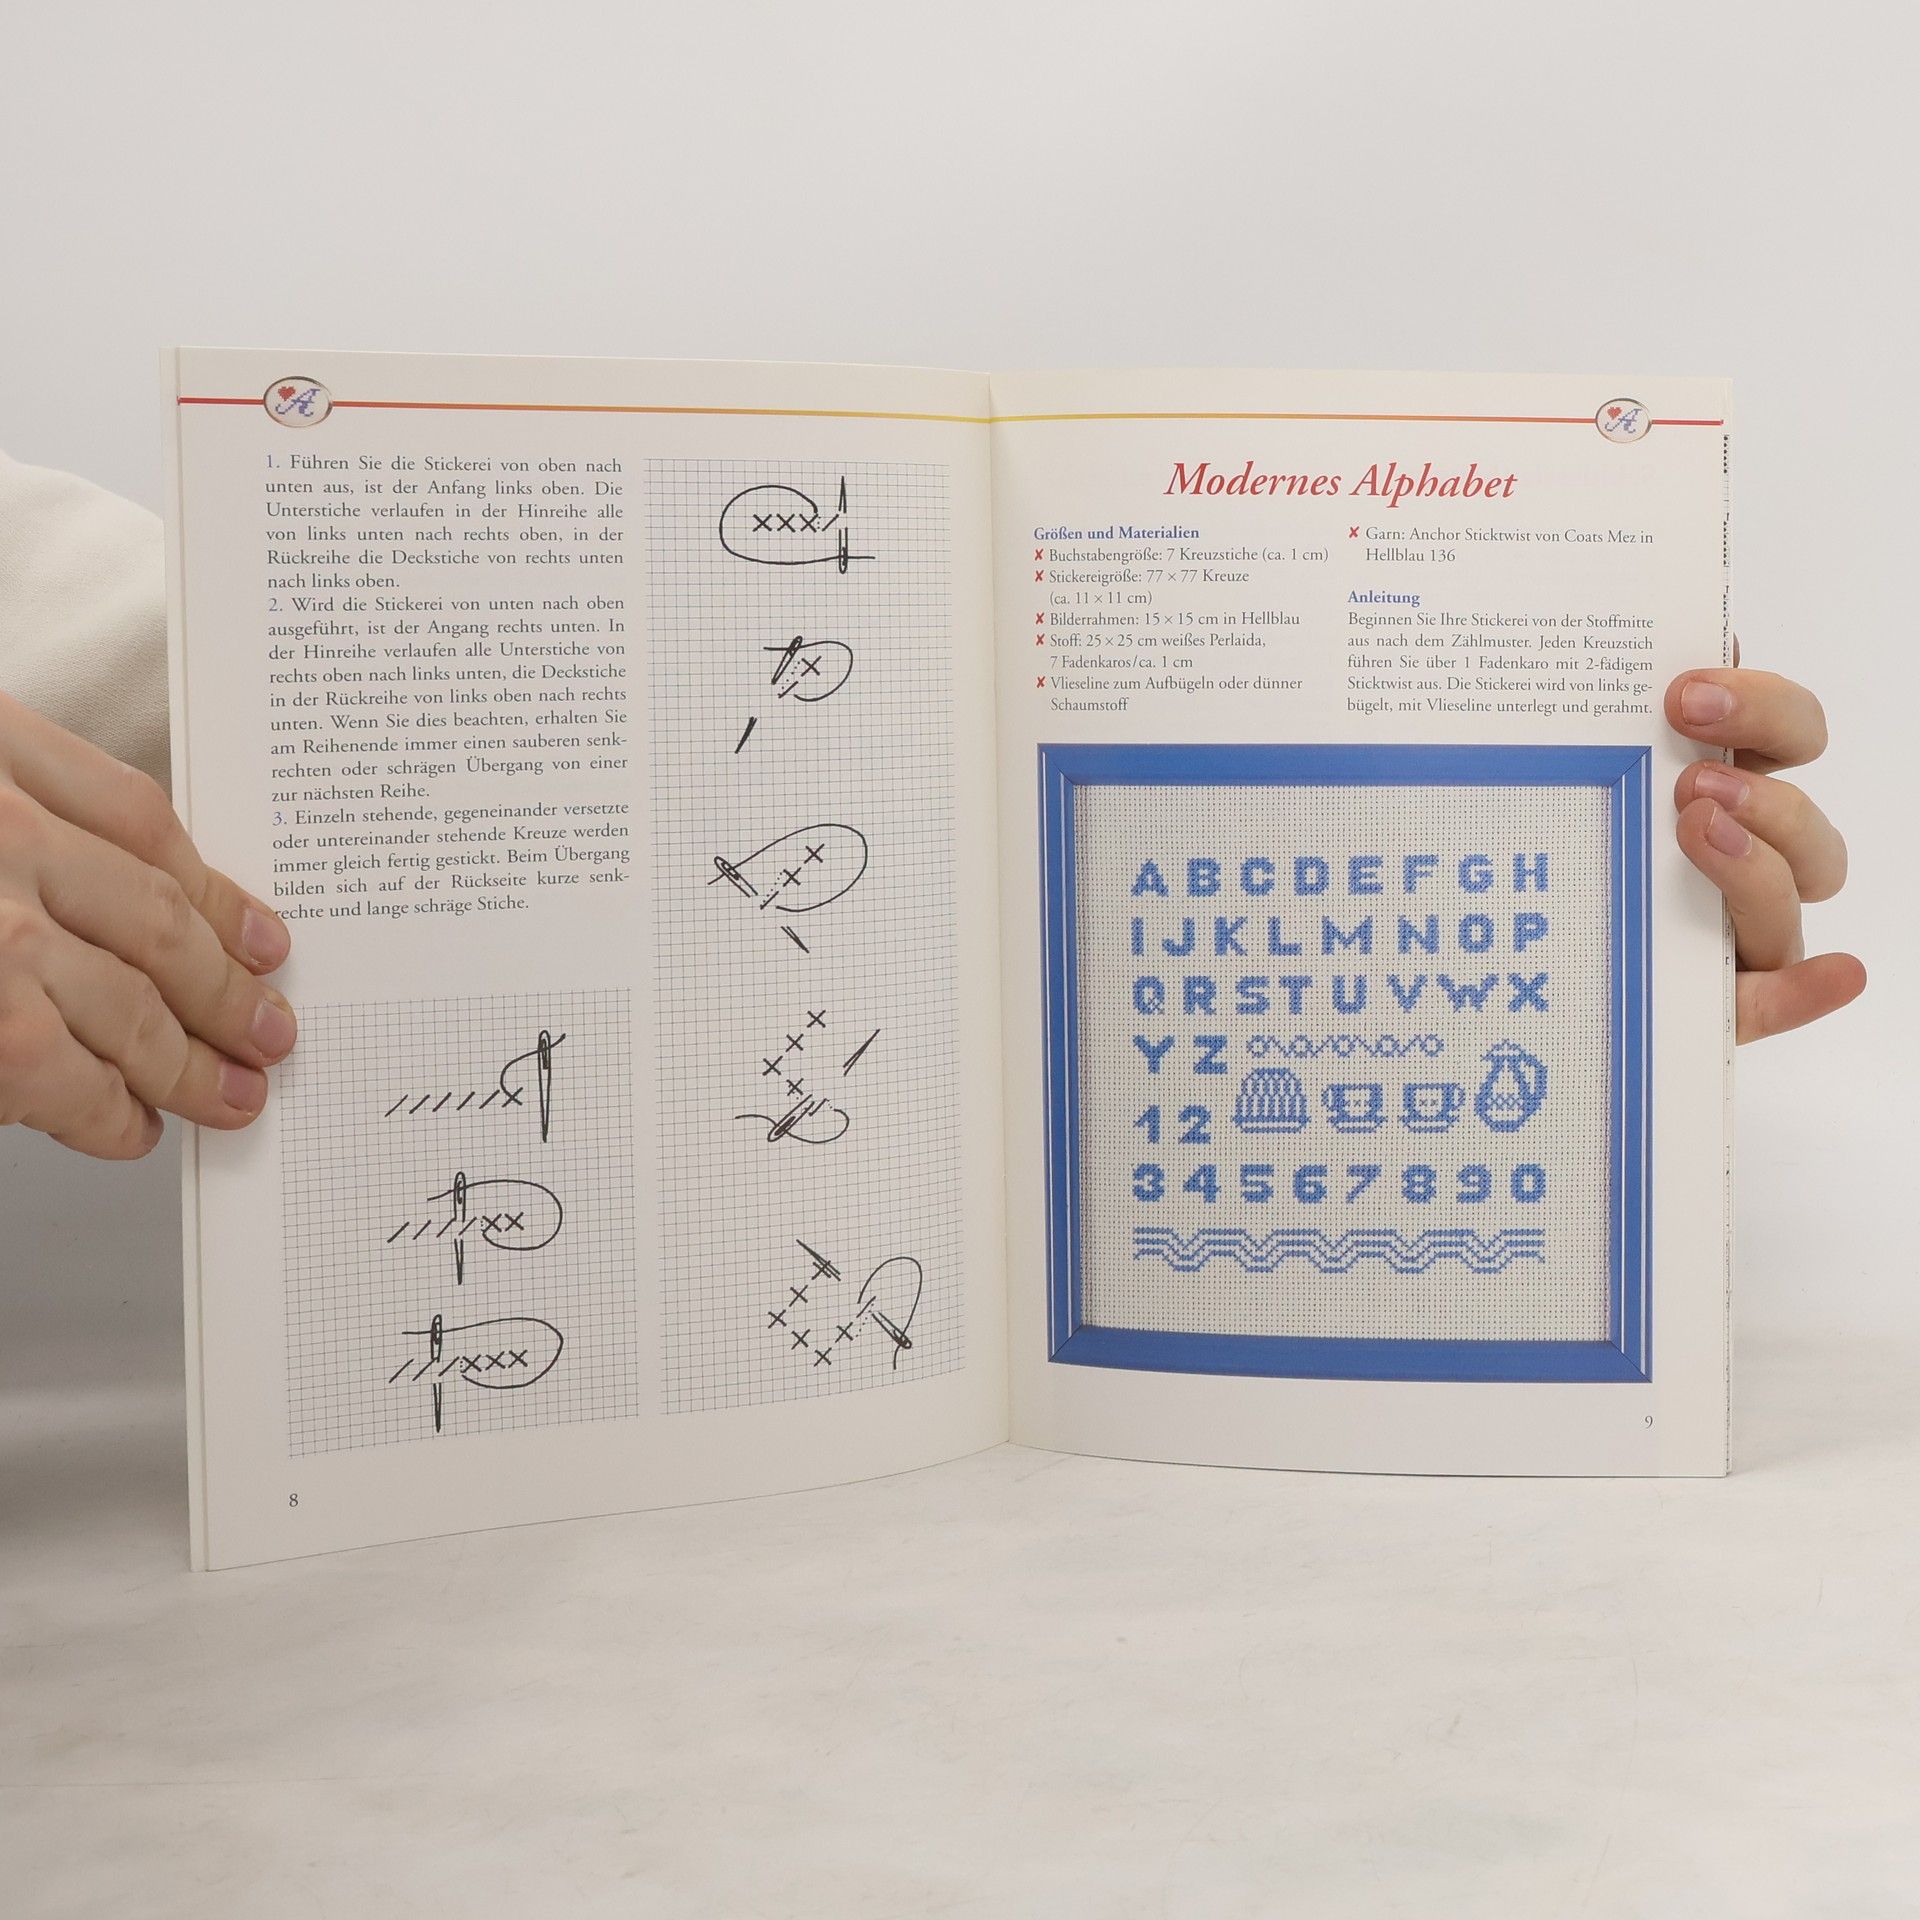 1. Führen Sie die Stickerei von oben nach
unten aus, ist der Anfang links oben. Die
Unterstiche verlaufen in der Hinreihe alle
von links unten nach rechts oben, in der
Rückreihe die Deckstiche von rechts unten
nach links oben.
2. Wird die Stickerei von unten nach oben
ausgeführt, ist der Angang rechts unten. In
der Hinreihe verlaufen alle Unterstiche von
rechts oben nach links unten, die Deckstiche
in der Rückreihe von links oben nach rechts
unten. Wenn Sie dies beachten, erhalten Sie
am Reihenende immer einen sauberen senk-
rechten oder schrägen Übergang von einer
zur nächsten Reihe.
3. Einzeln stehende, gegeneinander versetzte
oder untereinander stehende Kreuze werden
immer gleich fertig gestickt. Beim Übergang
bilden sich auf der Rückseite kurze senk-
rechte und lange schräge Stiche.
8
A
A
Modernes Alphabet
Größen und Materialien
✘ Buchstabengröße: 7 Kreuzstiche (ca. 1 cm)
✘ Stickereigröße: 77 × 77 Kreuze
(ca. 11 × 11 cm)
✘ Bilderrahmen: 15 × 15 cm in Hellblau
✘ Stoff: 25 × 25 cm weißes Perlaida,
7 Fadenkaros/ca. 1 cm
✘ Vlieseline zum Aufbügeln oder dünner
Schaumstoff
✘ Garn: Anchor Sticktwist von Coats Mez in
Hellblau 136
Anleitung
Beginnen Sie Ihre Stickerei von der Stoffmitte
aus nach dem Zählmuster. Jeden Kreuzstich
führen Sie über 1 Fadenkaro mit 2-fädigem
Sticktwist aus. Die Stickerei wird von links ge-
bügelt, mit Vlieseline unterlegt und gerahmt.
ABCDEFGH
IJKLMNOP
QRSTUVWX
YZ
12
34567890
9